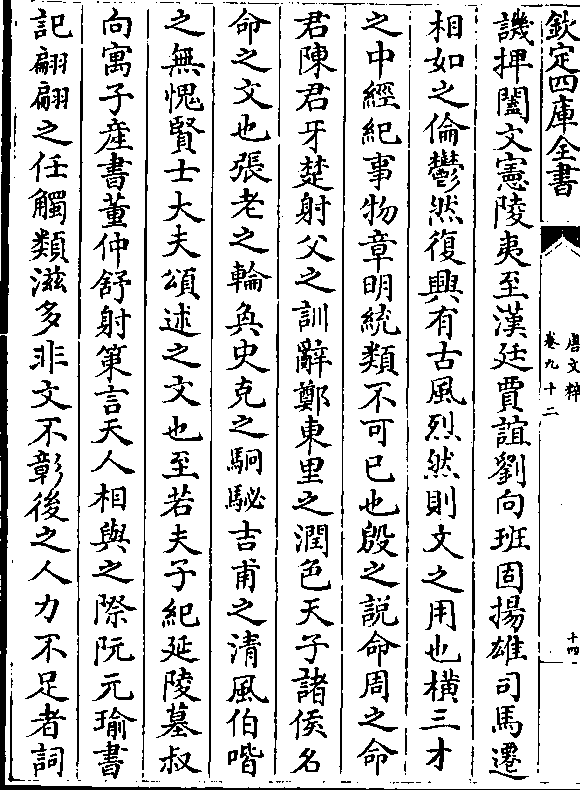 欽定四庫全書
唐文粹
卷九十二
十四
譏押闔文憲陵夷至漢廷賈誼劉向班固揚雄司馬遷
相如之倫鬱然復興有古風烈然則文之用也横三才
之中經紀事物章明統類不可已也殷之説命周之命
君陳君牙楚射父之訓辭鄭東里之潤色天子諸侯名
命之文也張老之輪奐史克之駉駜吉甫之清風伯喈
之無愧賢士大夫頌述之文也至若夫子紀延陵墓叔
向寓子産書董仲舒射策言天人相與之際阮元瑜書
記翩翩之任觸類滋多非文不彰後之人力不足者詞